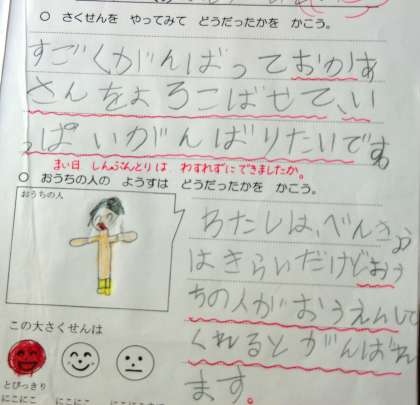 ○ さくせんを やってみて どうだったかを かこう。
すごくがんばっておかあ
さんをよろこばせて、い
っぱいがんばりたいです。
まい日 しんぶんとりは わすれずにできましたか。
○ おうちの人の ようすは どうだったかを かこう。
おうちの人
わたしは、べんきょう
はきらいだけどおう
ちの人がおうえんして
くれるとがんばれ
ます。
この大さくせんは
とびっきり
にこにこ
にこにこ